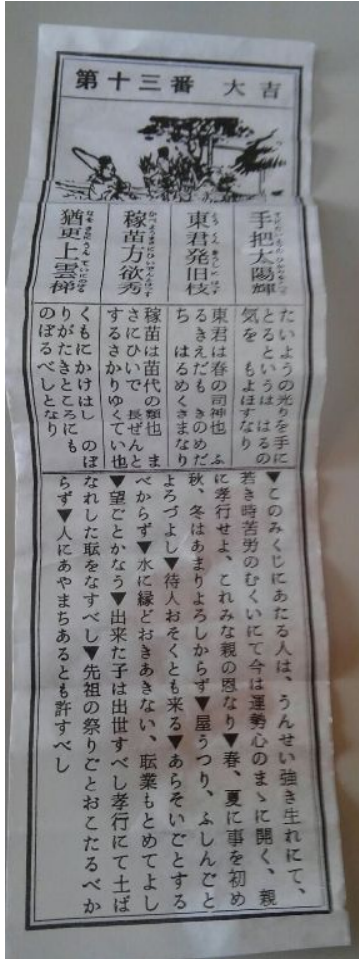 第十三番 大吉
手把太陽輝
東君発旧枝
稼苗方欲秀
猶更上雲梯
たいようの光りを手に
とるというは はるの
気を もよほすなり
東君は春の司神也 ふ
るきえだも きのめだ
ち はるめくさまなり
稼苗は苗代の類也 ま
さにひいで 長ぜんと
するさかりゆくてい也
くもにかけはし のぼ
りがたきところにも
のぼるべしとなり
▼このみくじにあたる人は、うんせい強き生れにて、
若き時苦労のむくいにて今は運勢心のまゝに開く、親
に孝行せよ、これみな親の恩なり▼春、夏に事を初め
秋、冬はあまりよろしからず▼屋うつり、ふしんごと
よろづよし▼待人おそくとも来る▼あらそいごとする
べからず▼水に縁どおきあきない、転業もとめてよし
▼望ごとかなう▼出来た子は出世すべし孝行にて土ば
なれした転をなすべし▼先祖の祭りごとおこたるべか
らず▼人にあやまちあるとも許すべし